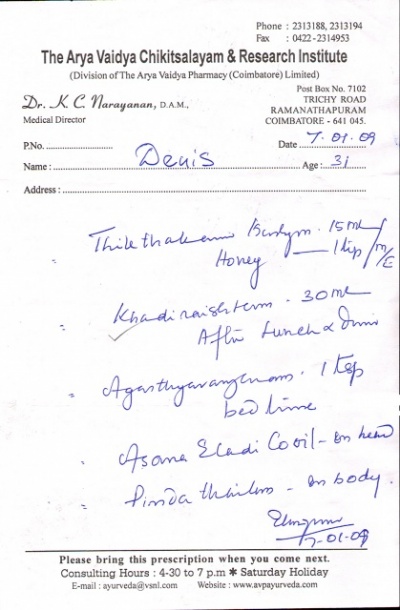 Phone : 2313188, 2313194
Fax : 0422-2314953
The Arya Vaidya Chikitsalayam & Research Institute
(Division of The Arya Vaidya Pharmacy (Coimbatore) Limited)
Dr. K. C. Narayanan, D.A.M.,
Medical Director
Post Box No. 7102
TRICHY ROAD
RAMANATHAPURAM
COIMBATORE - 641 045.
P.No. Date 7.01.09
Name : Denis Age : 31
Address :
15 ml
Honey — 1 tsp / M/E
Khadirarishtam - 30 ml
After Lunch & Dinner
1 tsp
bed time
Asana Eladi Cooil - on head
Pinda thailam - on body.
7-01-09
Please bring this prescription when you come next.
Consulting Hours : 4-30 to 7 p.m ✱ Saturday Holiday
E-mail : ayurveda@vsnl.com Website : www.avpayurveda.com